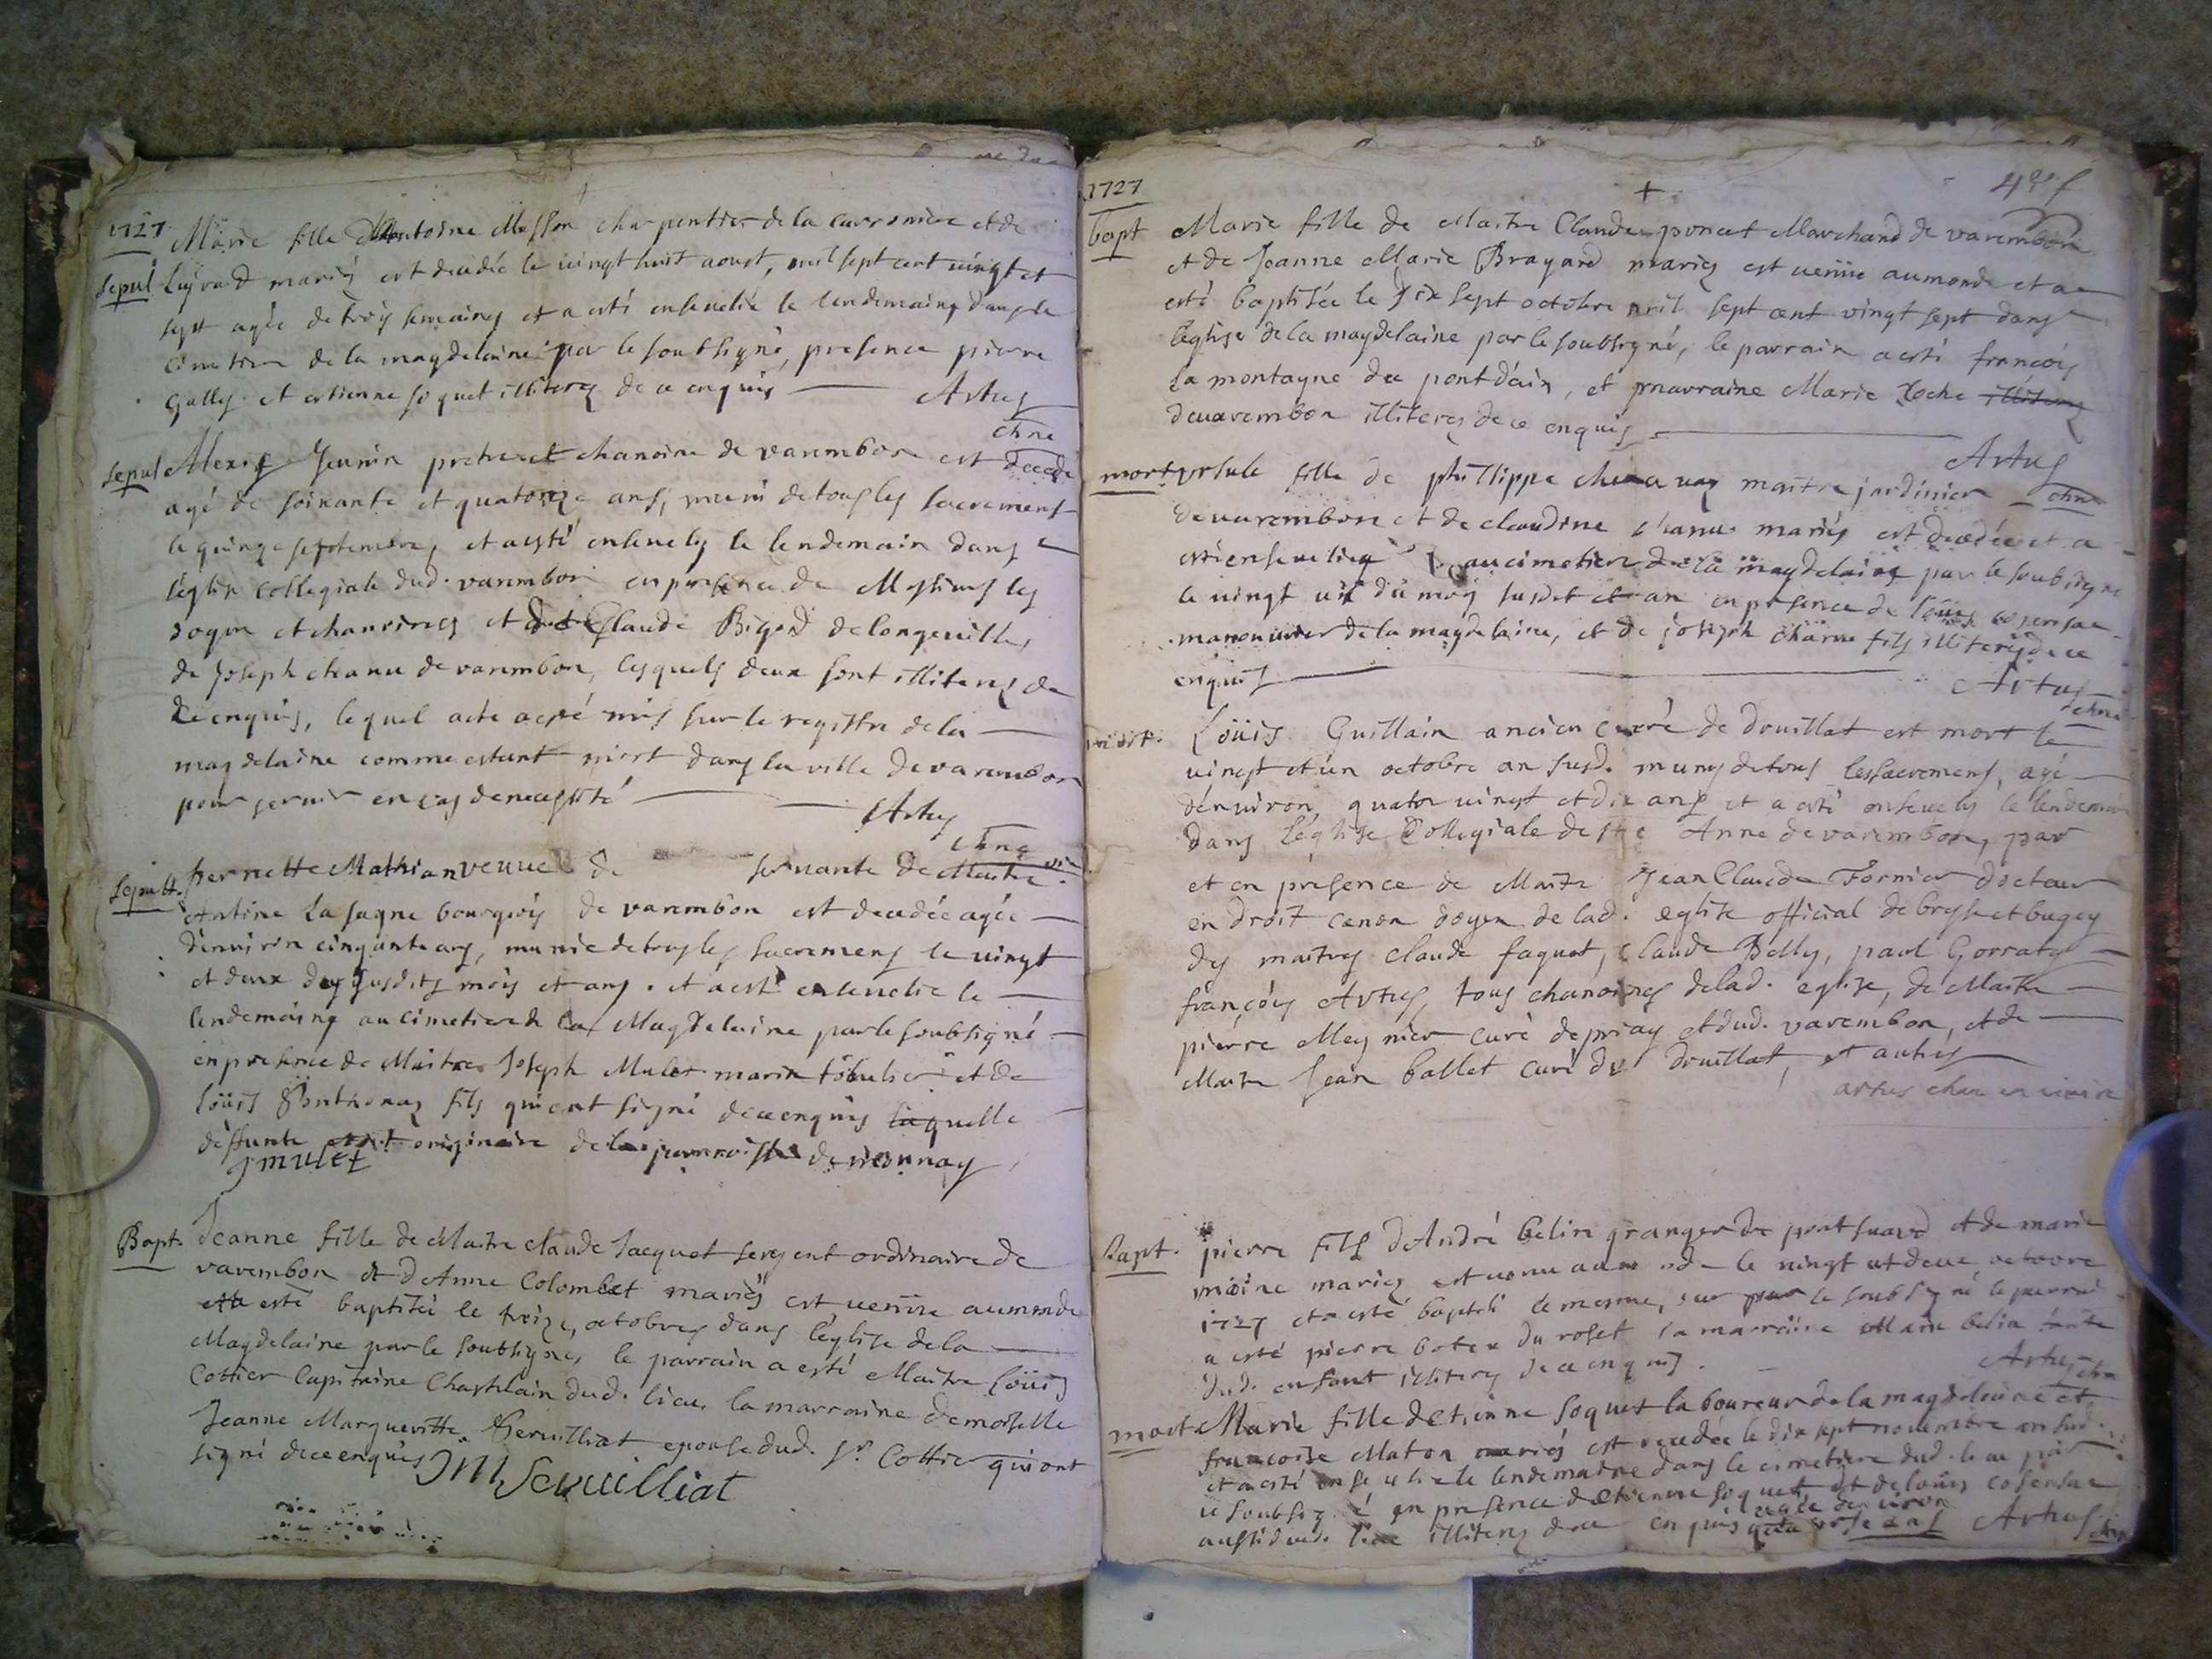 1727
Marie fille dAntoine Masson charpentier de la et de
sepul mariés est decedée le vingt huit aoust, mil sept cent vingt et
sept agée de troys semaines et a esté ensevelie le lendemaine dans le
cimetiere de la magdelaine par le soubsigné, presence pierre
Gally et estienne soquet illiteres de ce enquis Artus
chne
sepul Alexis Jeunin pretre et chanoine de varembon est decedé
agé de soixante et quatorze ans, muni de tous les sacremens
le quinze septembre, et a esté ensevely le lendemain dans
l'eglise collegiale dud. varembon en presence de Messieurs les
doyen et chanoines et de Claude Bigod de longeville,
de Joseph chanu de varembon, lesquels deux sont illiteres de
ce enquis, lequel acte a esté mis sur le registre de la
magdelaine comme estant mort dans la ville de varembon
pour servir en cas de necessité
Artus
chne
sepult. pernette Mathian veuve de servante de Maitre
Antoine la sagne bourgeois de varembon est decedée agée
d'environ cinquante ans, munie de tous les sacremens le vingt
et deux des susdits mois et ans. et a esté ensevelie le
lendemaine au cimetiere de la Magdelaine par le soubsigné
en presence de Maitre Joseph Mulet et de
loüis fils qui ont signé de ce enquis laquelle
deffunte estoit originaire de la parroisse de
J mulet
Bapt. Jeanne fille de Maitre claude Jacquet sergent ordinaire de
varembon et d'Anne Colombet mariés est venüe au monde
et a esté baptisée le treize, octobre dans l'eglise de la
Magdelaine par le soubsigné, le parrain a esté Maitre loüis
Cottier Capitaine Chastelain dud. lieu, la marraine demoiselle
Jeanne Marguerite Servilliat epouse dud. sr. Cottier qui ont
signé de ce enquis JM Servilliat
1727
bapt Marie fille de Maitre Claude poncet Marchand de varembon
et de Jeanne Marie Brayard mariés est venüe au monde et a
esté baptisée le dix sept octobre mil sept cent vingt sept dans
l'eglise de la magdelaine par le soubsigné, le parrain a esté françois
la montagne du pont d'ain, et marraine Marie Roche illiteres
de varembon illiteres de ce enquis
Artus
chne
mort ursule fille de phillippe maitre jardinier
de varembon et de claudine chanu mariés est decedée et a
esté ensevelie au cimetiere de la magdelaine par le soubsigné
le vingt un du moy susdit et an en presence de loüis cosensac
manouvrier de la magdelaine, et de joseph chanu fils illiteres de ce
enquis
Artus
chne
mort. Loüis Guillain ancien curé de druillat est mort le
vingt et un octobre an susd. muny de tous les sacremens, agé
d'environ, quatre vingt et dix ans et a esté ensevely le lendemain
dans l'eglise Collegiale de ste Anne de varembon, par
et en presence de Maitre Jean Claude Fornier docteur
en droit canon doyen de lad. eglise official de bresse et bugey
des maitres claude faquet, claude Belly, paul Gorraty
françois Artus, tous chanoines de lad. eglise, de Maitre
pierre Meynier curé de priay et dud. varembon, et de
Maitre Jean ballet curé de druillat, et autres
artus chan et vicaire
Bapt. pierre fils d'André belin granger de pont suard et de marie
moine mariés est venu au monde le vingt et deux octobre
1727 et a esté baptisé le mesme, jour par le soubsigné le parrain
a esté pierre du roset la marraine Marie belin tante
dud. enfant illiteres de ce enquis.
Artus chne
mort Marie fille d'etienne soquet laboureur de la magdelaine et
francoise Maton mariés est decedée le dix sept novembre an susd.
et a esté ensevelie le lendemaine dans le cimetiere dud. lieu par
le soubsigné en presence d'etienne soquet, et de loüis cosensac
aussi dud. lieu illiteres de ce enquis agée d'environ ans Artus chne